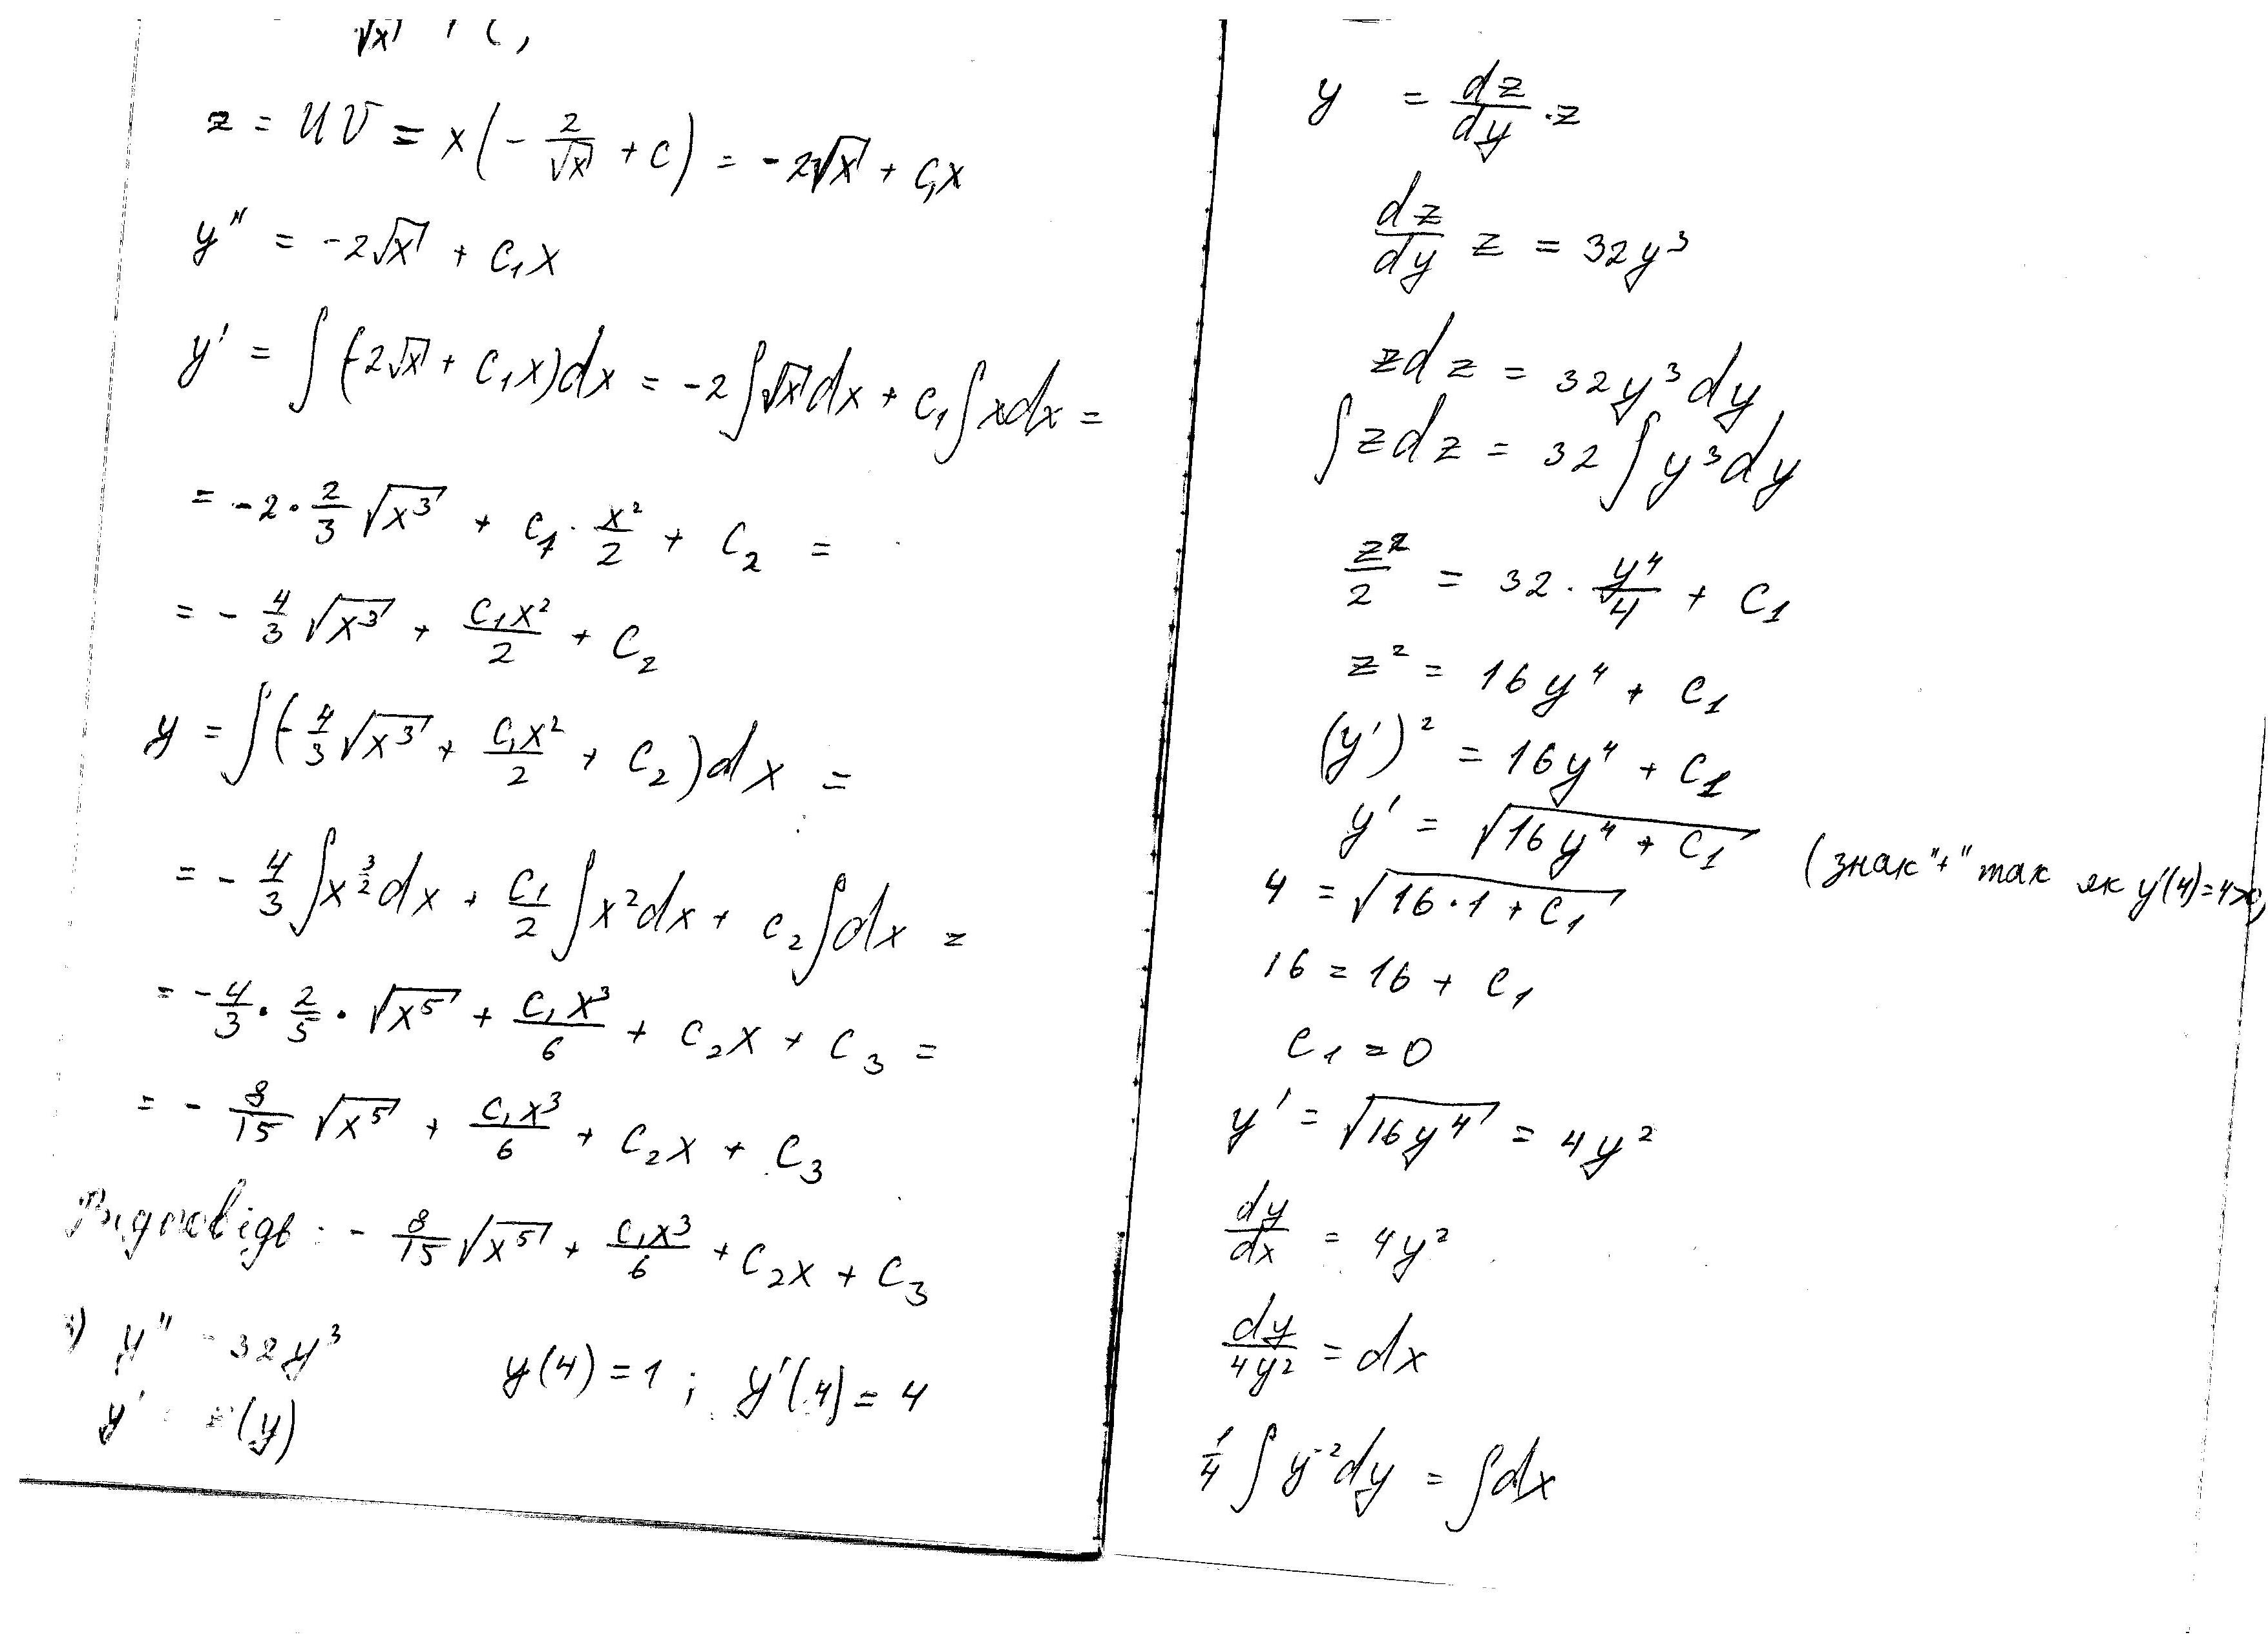 √x + C,
z = UV = x(- 2/√x + C) = -2√x + C₁x
y'' = -2√x + C₁x
y' = ∫(-2√x + C₁x)dx = -2∫√x dx + C₁∫xdx =
= -2 · 2/3 √x³ + C₁ · x²/2 + C₂ =
= - 4/3 √x³ + C₁x²/2 + C₂
y = ∫(-4/3 √x³ + C₁x²/2 + C₂)dx =
= - 4/3 ∫x^(3/2)dx + C₁/2 ∫x²dx + C₂∫dx =
= - 4/3 · 2/5 · √x⁵ + C₁x³/6 + C₂x + C₃ =
= - 8/15 √x⁵ + C₁x³/6 + C₂x + C₃
Відповідь: - 8/15 √x⁵ + C₁x³/6 + C₂x + C₃
) y'' = 32y³ y(4) = 1 ; y'(4) = 4
y' = z(y)
y = dz/dy · z
dz/dy z = 32y³
zdz = 32y³dy
∫zdz = 32∫y³dy
z²/2 = 32 · y⁴/4 + C₁
z² = 16y⁴ + C₁
(y')² = 16y⁴ + C₁
y' = √(16y⁴ + C₁) (знак "+" так як y'(4)=4>0)
4 = √(16·1 + C₁)
16 = 16 + C₁
C₁ = 0
y' = √(16y⁴) = 4y²
dy/dx = 4y²
dy/4y² = dx
1/4 ∫y⁻²dy = ∫dx